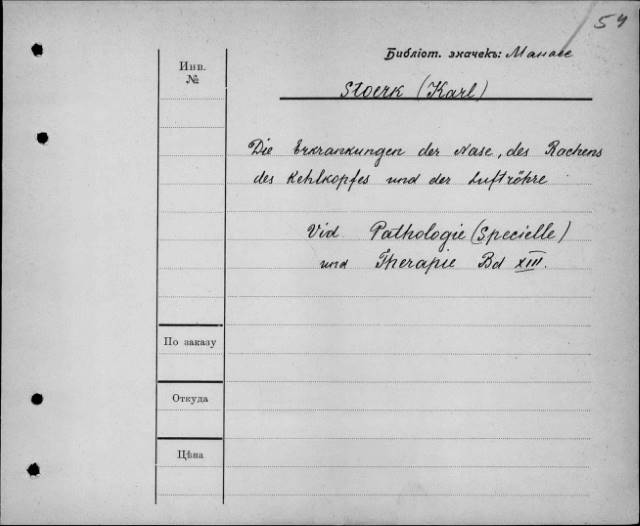 54
Библіот. значекъ: Манасе
Инв.
№
Stoerk (Karl)
Die Erkrankungen der Nase, des Rachens
des Kehlkopfes und der Luftröhre
Vid Pathologie (Specielle)
und Therapie Bd XIII.
По заказу
Откуда
Цѣна